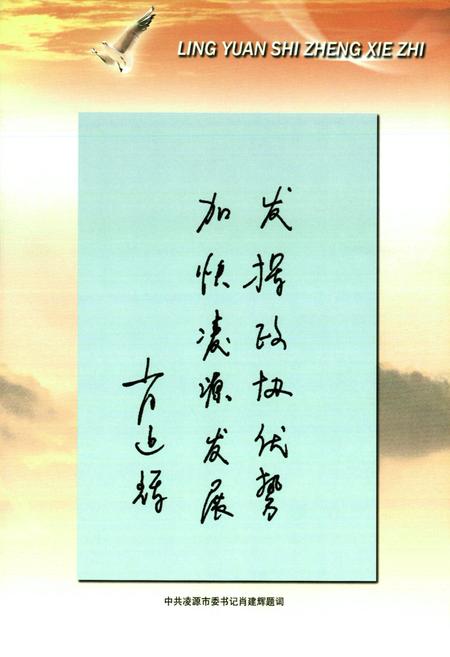 LING YUAN SHI ZHENG XIE ZHI
发挥政协优势
加快凌源发展
肖建辉
中共凌源市委书记肖建辉题词